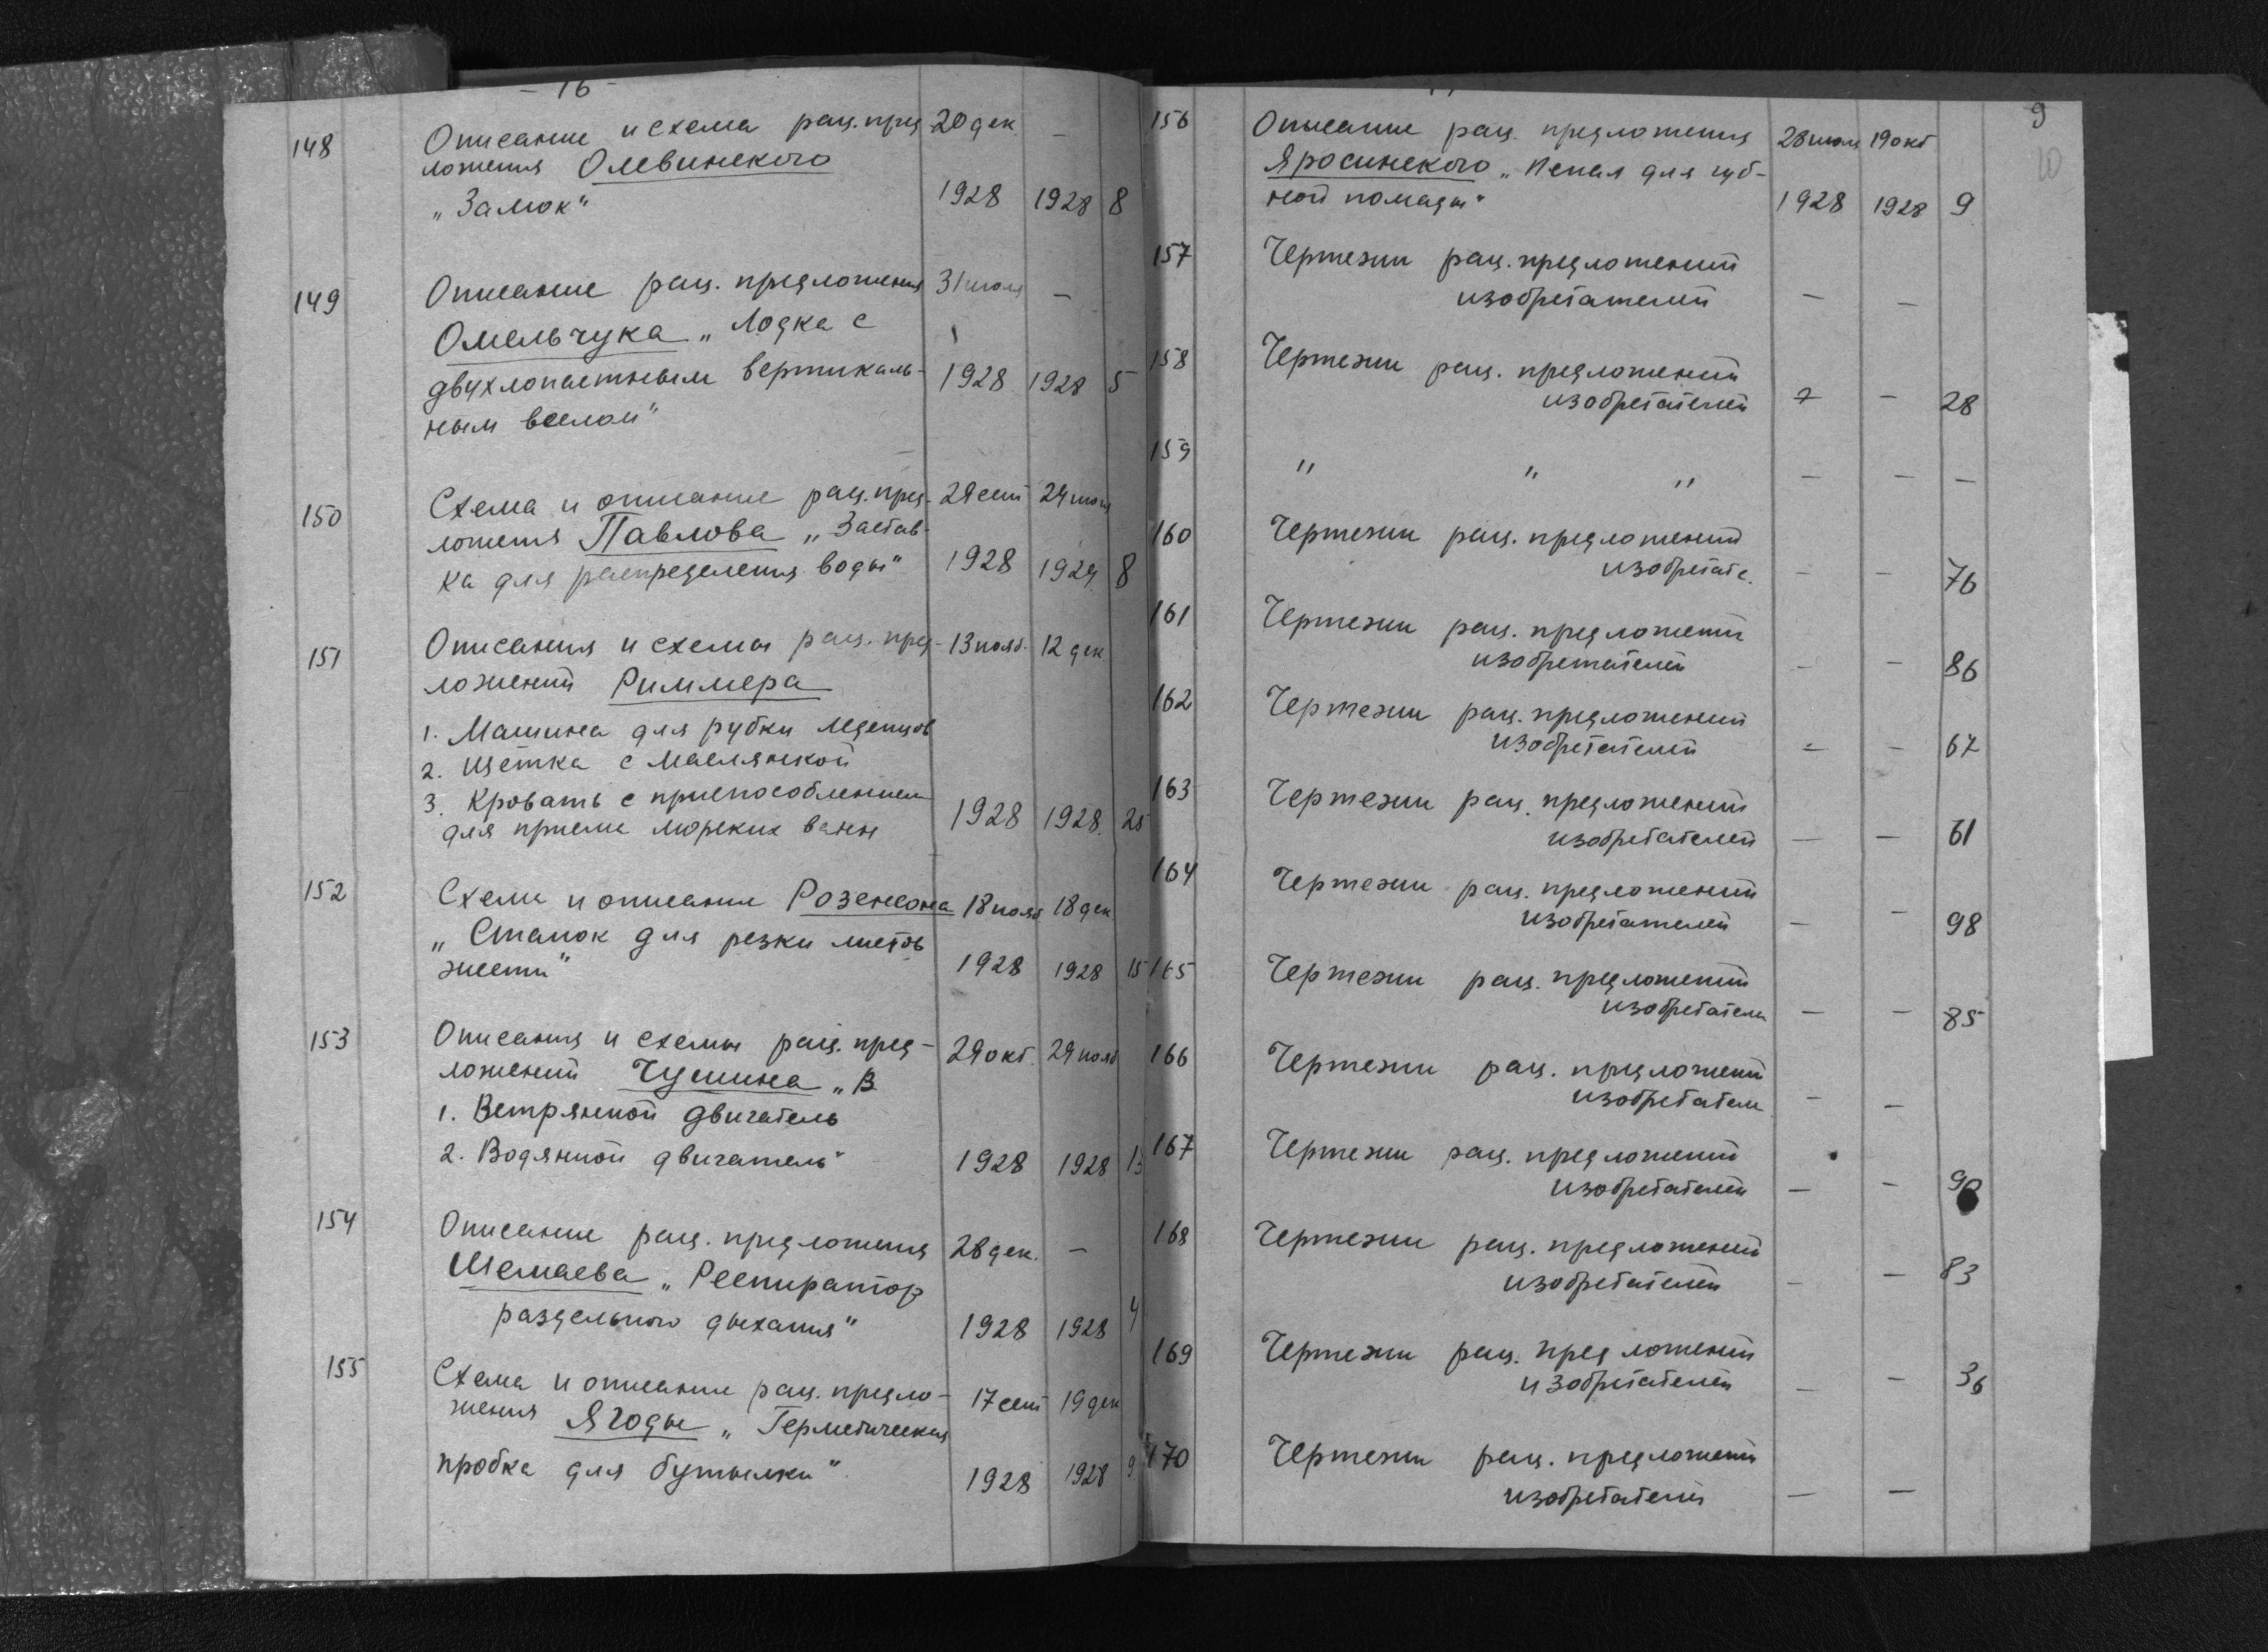 - 16 -
148 Описание и схема рац. пред 20 дек. —
ложения Олевинского
„Замок“ 1928 1928 8
149 Описание рац. предложения 31 июля —
Омельчука „Лодка с
двухлопастным вертикаль- 1928 1928 5
ным веслом“
150 Схема и описание рац. пред- 28 сент 24 июля
ложения Павлова „Застав-
ка для распределения воды“ 1928 1929 8
151 Описания и схемы рац. пред- 13 нояб. 12 дек.
ложений Риммера
1. Машина для рубки
2. Щетка с маслянкой
3. Кровать с приспособлением
для приема морских ванн 1928 1928. 25
152 Схема и описание Розенсона 18 нояб 18 дек
„Станок для резки листов
жести“ 1928 1928 15
153 Описания и схемы рац. пред- 29 окт. 29 нояб
ложений Чушина „В
1. Ветрянной двигатель
2. Водянной двигатель“ 1928 1928 13
154 Описание рац. предложения 28 дек. —
Шемаева „Респиратор
раздельного дыхания“ 1928 1928 4
155 Схема и описание рац. предло- 17 сент 19 дек
жения Ягоды „Герметическая
пробка для бутылки“. 1928 1928 9
9
10
156 Описание рац. предложения 28 июля 19 окт
Яросинского „Пенал для губ-
ной помады“ 1928 1928 9
157 Чертежи рац. предложений
изобретателей — —
158 Чертежи рац. предложений
изобретателей — — 28
159 " " " — — —
160 Чертежи рац. предложений
изобретате. — — 76
161 Чертежи рац. предложений
изобретателей — — 86
162 Чертежи рац. предложений
изобретателей — — 67
163 Чертежи рац. предложений
изобретателей — — 61
164 Чертежи рац. предложений
изобретателей — — 98
165 Чертежи рац. предложений
изобретатели — — 85
166 Чертежи рац. предложений
изобретатели — —
167 Чертежи рац. предложений
изобретателей — — 90
168 Чертежи рац. предложений
изобретателей — — 83
169 Чертежи рац. предложений
изобретателей — — 36
170 Чертежи рац. предложений
изобретателей — —